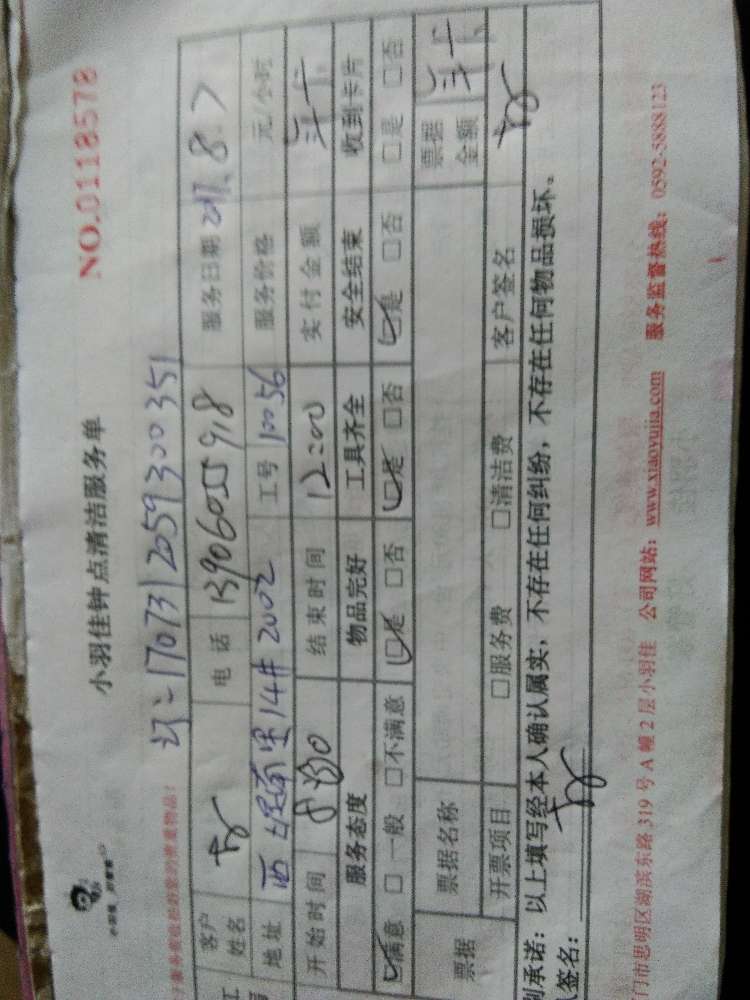 NO.0118578
小羽佳钟点清洁服务单
1707312059300351
客户姓名 电话 13906055918 服务日期 2017.8.7
地址 14# 2002 工号 10056 服务价格 元/小时
开始时间 8:30 结束时间 12:00 实付金额 年卡
服务态度 物品完好 工具齐全 安全结束 收到卡片
☑满意 □一般 □不满意 ☑是 □否 ☑是 □否 ☑是 □否 □是 □否
票据 票据名称 票据金额 年卡
开票项目 □服务费 □清洁费 客户签名
承诺：以上填写经本人确认属实，不存在任何纠纷，不存在任何物品损坏。
签名：
门市思明区湖滨东路319号A幢2层小羽佳 公司网站：www.xiaoyujia.com 服务监督热线：0592-5888123